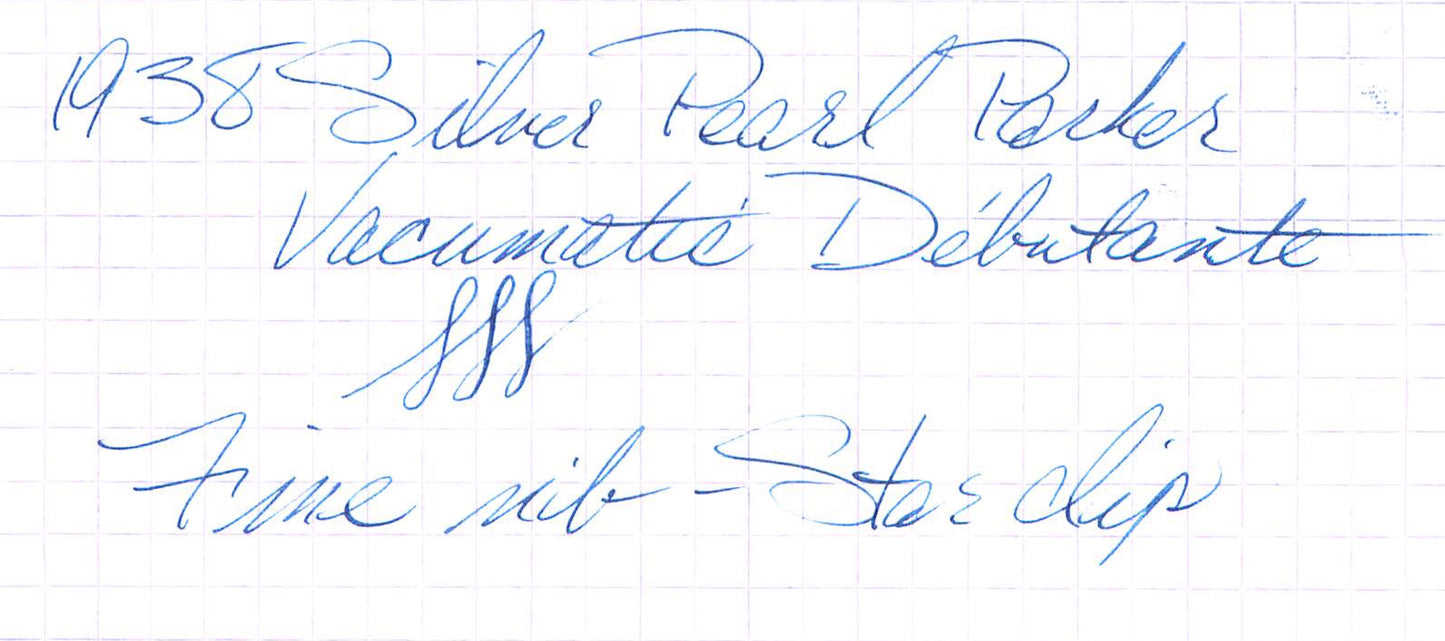 1938 Silver Pearl Parker
Vacumatic Débutante
Fine nib - Star clip